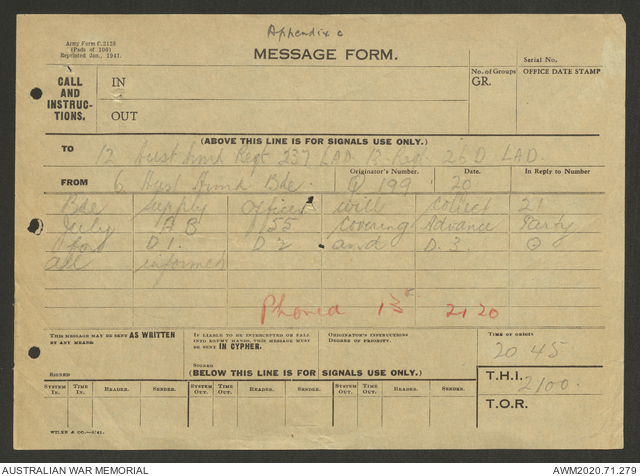 Appendix c
Army Form C.2128
(Pads of 100)
Reprinted Jan., 1941.
MESSAGE FORM.
Serial No.
CALL AND INSTRUCTIONS.
IN
OUT
No. of Groups
GR.
OFFICE DATE STAMP
(ABOVE THIS LINE IS FOR SIGNALS USE ONLY.)
TO 12 Aust Armd Regt 237 LAD Regt LAD
FROM 6 Aust Armd Bde
Originator's Number. Q 199
Date. 20
In Reply to Number
Bde Supply Officer will collect 21
July AB 55 Covering Advance Party
for D1. D2 and D.3.
all informed
Phoned 2120
THIS MESSAGE MAY BE SENT AS WRITTEN BY ANY MEANS.
IF LIABLE TO BE INTERCEPTED OR FALL INTO ENEMY HANDS, THIS MESSAGE MUST BE SENT IN CYPHER.
ORIGINATOR'S INSTRUCTIONS
DEGREE OF PRIORITY.
TIME OF ORIGIN
2045
SIGNED
SIGNED
(BELOW THIS LINE IS FOR SIGNALS USE ONLY.)
T.H.I. 2100.
SYSTEM IN. TIME IN. READER. SENDER. SYSTEM OUT. TIME OUT. READER. SENDER. SYSTEM OUT. TIME OUT. READER. SENDER.
T.O.R.
AUSTRALIAN WAR MEMORIAL
AWM2020.71.279